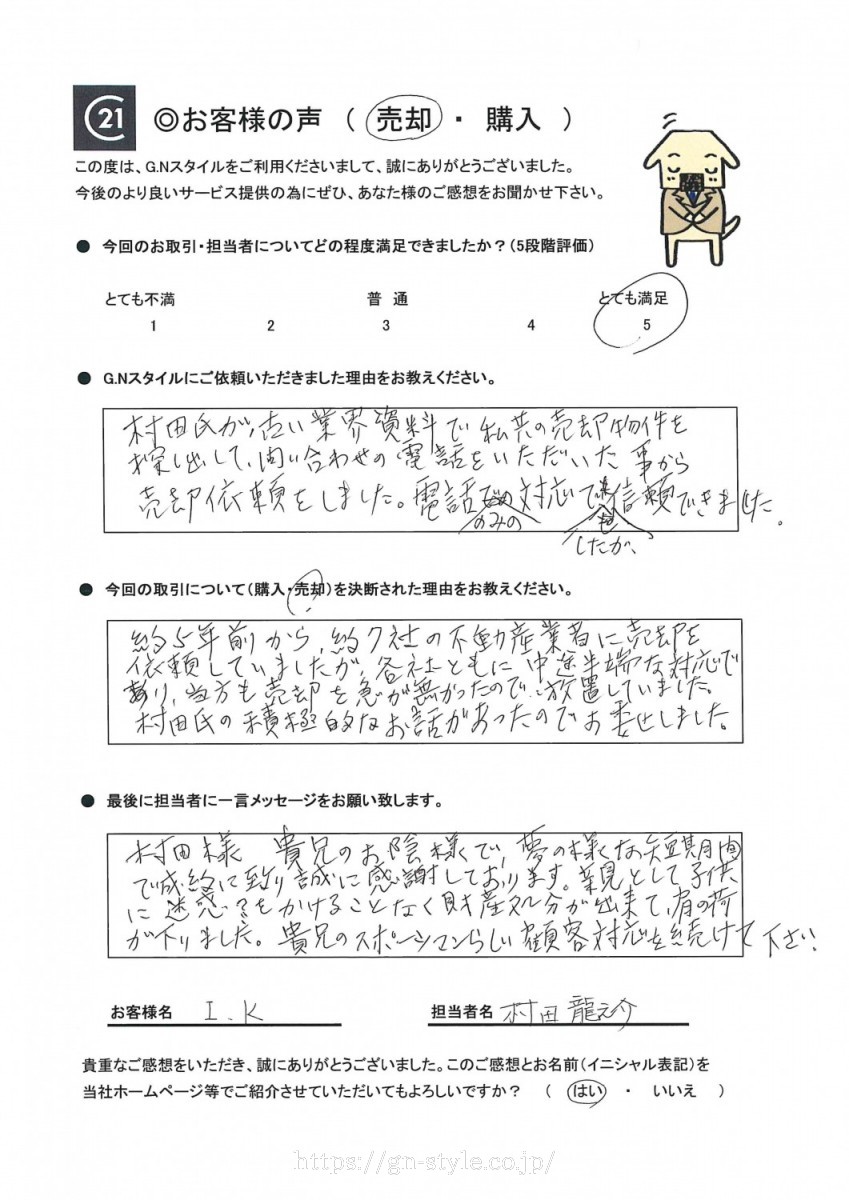 C21
◎お客様の声 （ 売却 ・ 購入 ）
この度は、G.Nスタイルをご利用くださいまして、誠にありがとうございました。
今後のより良いサービス提供の為にぜひ、あなた様のご感想をお聞かせ下さい。
● 今回のお取引・担当者についてどの程度満足できましたか？（5段階評価）
とても不満 普 通 とても満足
1 2 3 4 5
● G.Nスタイルにご依頼いただきました理由をお教えください。
村田氏が、古い業界資料で私共の売却物件を
探し出して、問い合わせの電話をいただいた事から
売却依頼をしました。電話 対応で 信頼できました。
のみの も
したが、
● 今回の取引について（購入・売却）を決断された理由をお教えください。
約5年前から、約7社の不動産業者に売却を
依頼していましたが、各社ともに中途半端な対応で
あり、当方も売却を急が無かったので、放置していました。
村田氏の積極的なお話があったのでお委せしました。
● 最後に担当者に一言メッセージをお願い致します。
村田様 貴兄のお陰様で、夢の様な短期間
で成約に至り誠に感謝しております。親として子供
に迷惑をかけることなく財産処分が出来て、肩の荷
が下りました。貴兄のスポーツマンらしい顧客対応を続けて下さい
お客様名 I.K 担当者名 村田 龍之介
貴重なご感想をいただき、誠にありがとうございました。このご感想とお名前（イニシャル表記）を
当社ホームページ等でご紹介させていただいてもよろしいですか？ （ はい ・ いいえ ）
https://gn-style.co.jp/